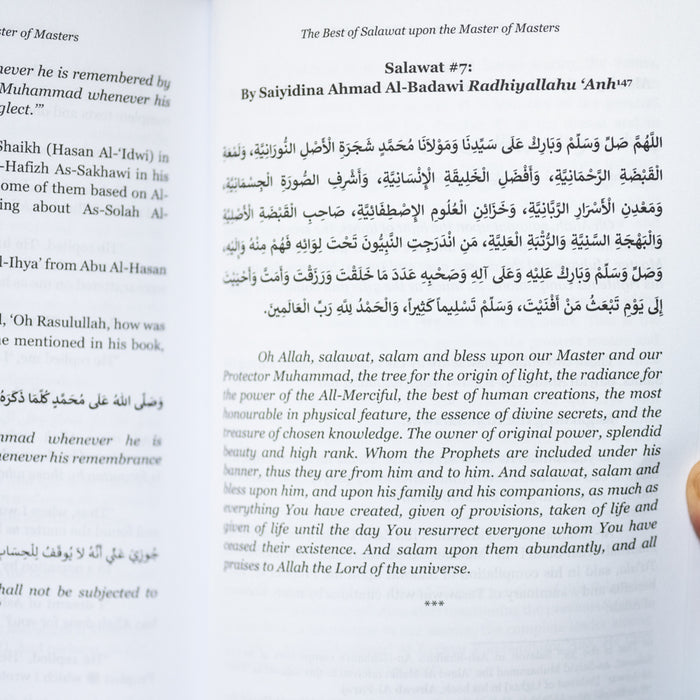 ter of Masters
ever he is remembered by
Muhammad whenever his
glect.'”
Shaikh (Hasan Al-‘Idwi) in
-Hafizh As-Sakhawi in his
ome of them based on Al-
ing about As-Solah Al-
l-Ihya’ from Abu Al-Hasan
l, ‘Oh Rasulullah, how was
e mentioned in his book,
وَصَلَّى اللهُ عَلَى مُحَمَّدٍ كُلَّمَا ذَكَرَهُ
mmad whenever he is
enever his remembrance
جُوزِيَ عَنِّي أَنَّهُ لَا يُوقَفُ لِلْحِسَابِ
hall not be subjected to
The Best of Salawat upon the Master of Masters
Salawat #7:
By Saiyidina Ahmad Al-Badawi Radhiyallahu ‘Anh147
اللَّهُمَّ صَلِّ وَسَلِّمْ وَبَارِكْ عَلَى سَيِّدِنَا وَمَوْلَانَا مُحَمَّدٍ شَجَرَةِ الْأَصْلِ النُّورَانِيَّةِ، وَلَمْعَةِ
الْقَبْضَةِ الرَّحْمَانِيَّةِ، وَأَفْضَلِ الْخَلِيقَةِ الْإِنْسَانِيَّةِ، وَأَشْرَفِ الصُّورَةِ الْجِسْمَانِيَّةِ،
وَمَعْدِنِ الْأَسْرَارِ الرَّبَّانِيَّةِ، وَخَزَائِنِ الْعُلُومِ الْإِصْطِفَائِيَّةِ، صَاحِبِ الْقَبْضَةِ الْأَصْلِيَّةِ
وَالْبَهْجَةِ السَّنِيَّةِ وَالرُّتْبَةِ الْعَلِيَّةِ، مَنِ انْدَرَجَتِ النَّبِيُّونَ تَحْتَ لِوَائِهِ فَهُمْ مِنْهُ وَإِلَيْهِ،
وَصَلِّ وَسَلِّمْ وَبَارِكْ عَلَيْهِ وَعَلَى آلِهِ وَصَحْبِهِ عَدَدَ مَا خَلَقْتَ وَرَزَقْتَ وَأَمَتَّ وَأَحْيَيْتَ
إِلَى يَوْمِ تَبْعَثُ مَنْ أَفْنَيْتَ، وَسَلِّمْ تَسْلِيماً كَثِيراً، وَالْحَمْدُ لِلَّهِ رَبِّ الْعَالَمِينَ.
Oh Allah, salawat, salam and bless upon our Master and our
Protector Muhammad, the tree for the origin of light, the radiance for
the power of the All-Merciful, the best of human creations, the most
honourable in physical feature, the essence of divine secrets, and the
treasure of chosen knowledge. The owner of original power, splendid
beauty and high rank. Whom the Prophets are included under his
banner, thus they are from him and to him. And salawat, salam and
bless upon him, and upon his family and his companions, as much as
everything You have created, given of provisions, taken of life and
given of life until the day You resurrect everyone whom You have
ceased their existence. And salam upon them abundantly, and all
praises to Allah the Lord of the universe.
***